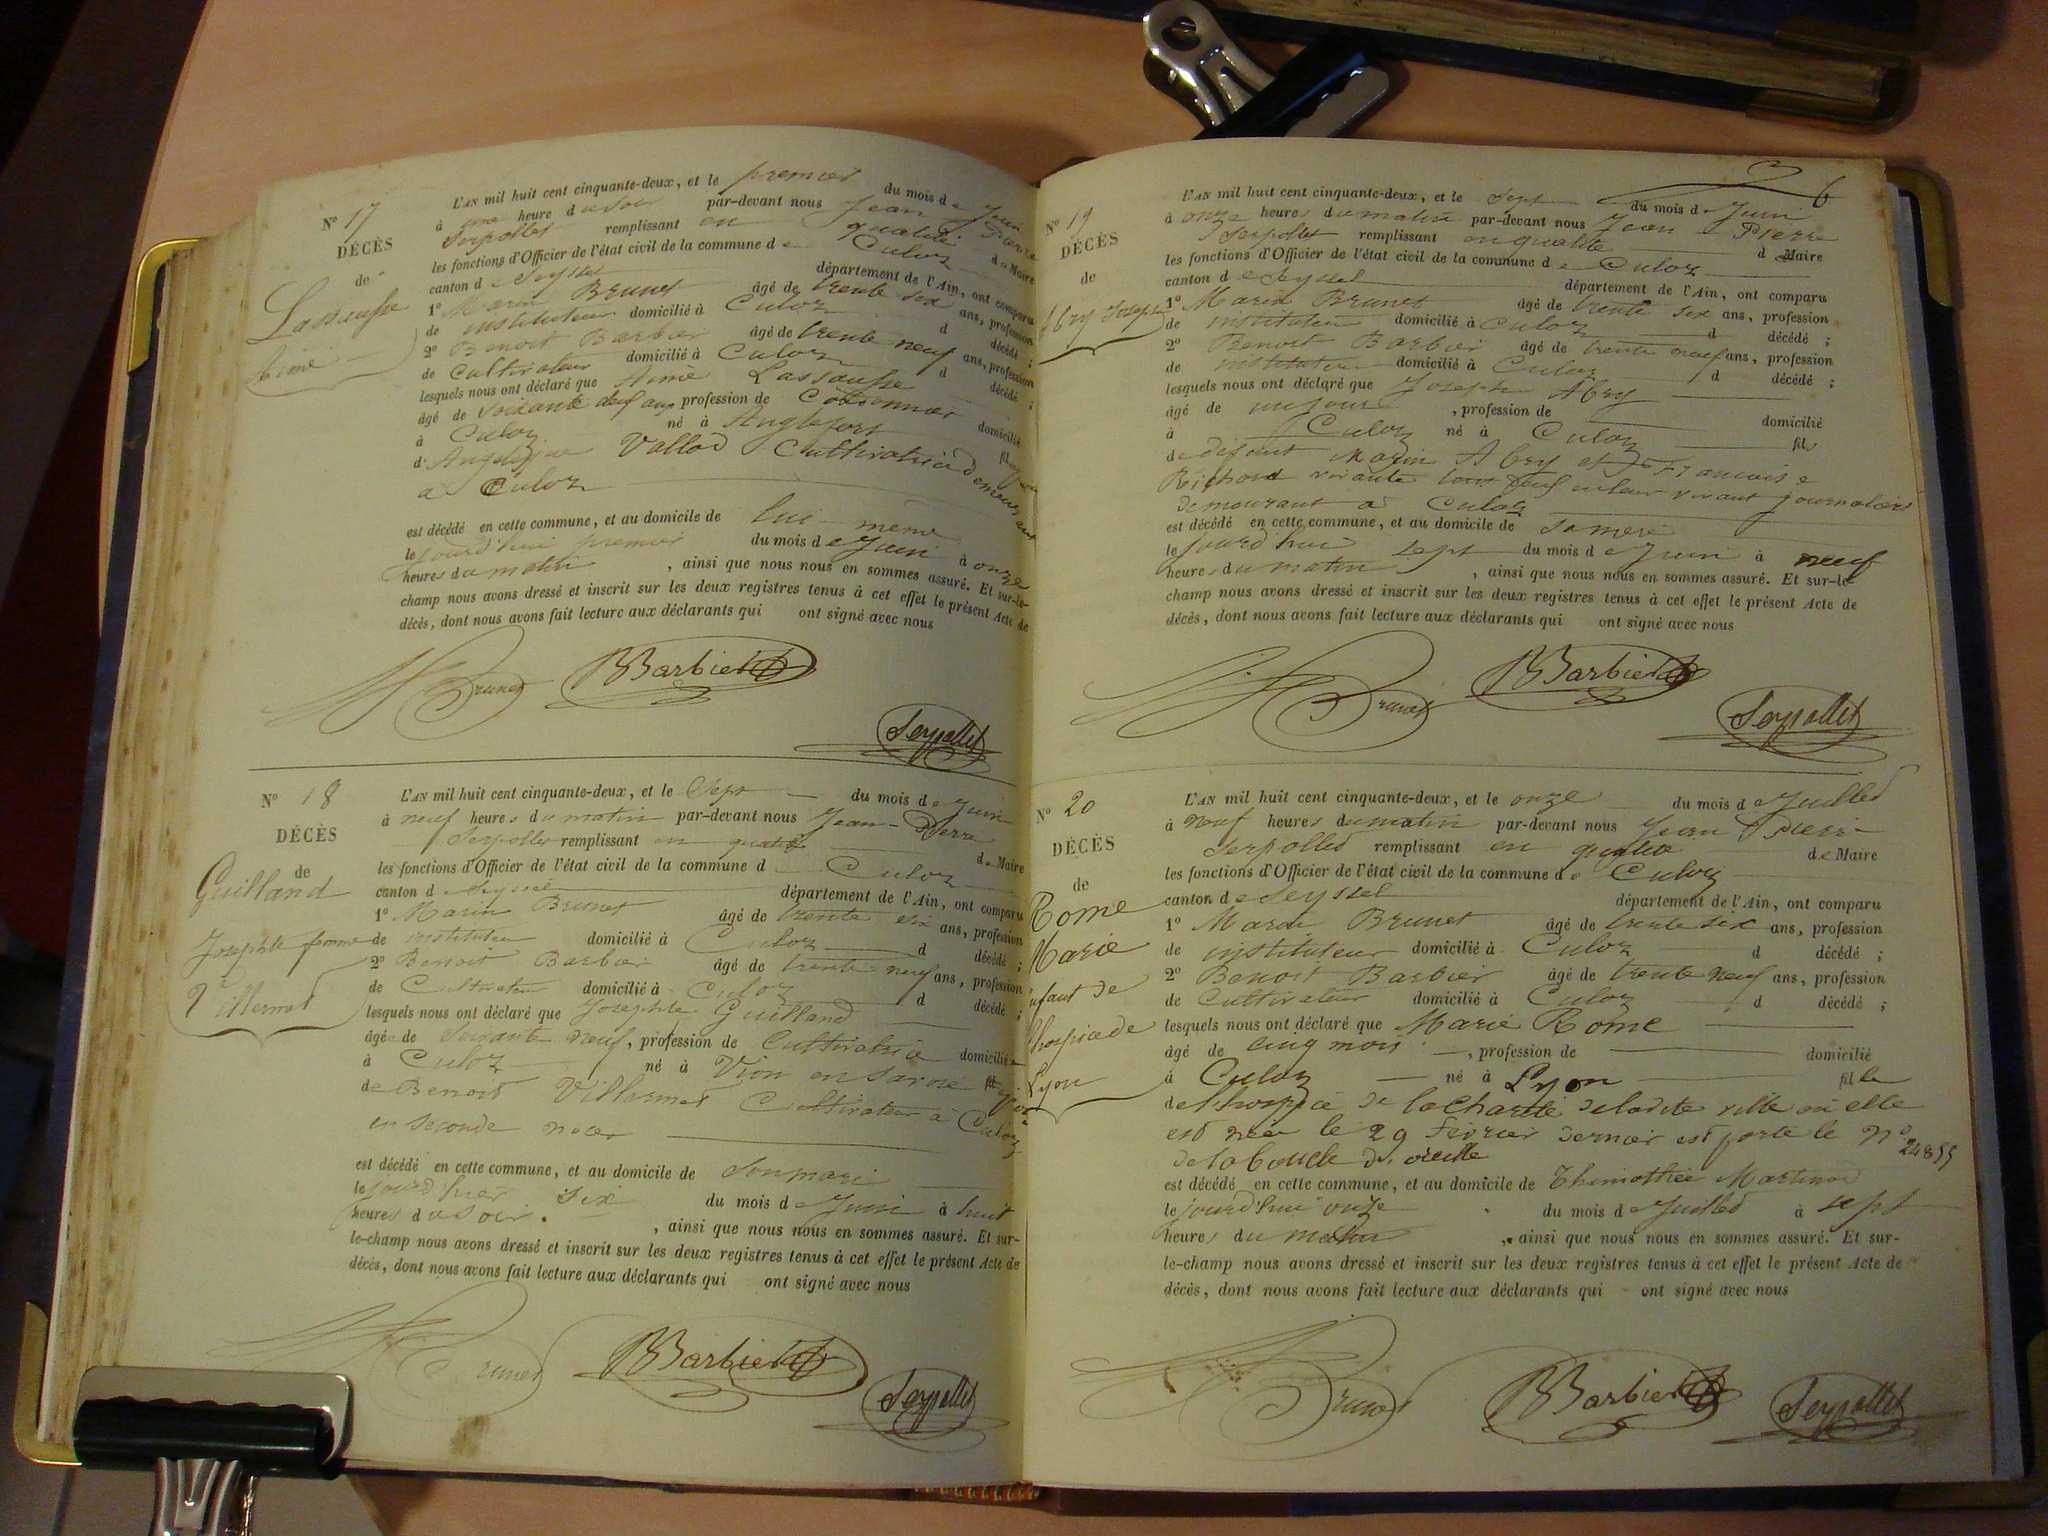 N° 17
DÉCÈS
de
Lassausse
Aimé
L'AN mil huit cent cinquante-deux, et le premier du mois de Juin
à une heure du soir par-devant nous Jean Pierre
Serpollet remplissant en qualité de Maire
les fonctions d'Officier de l'état civil de la commune de Culoz
canton de Seyssel département de l'Ain, ont comparu
1° Marin Brunet âgé de trente six ans, profession
de instituteur domicilié à Culoz d décédé ;
2° Benoit Barbier âgé de trente neuf ans, profession
de Cultivateur domicilié à Culoz d décédé ;
lesquels nous ont déclaré que Aimé Lassausse
âgé de soixante neuf ans profession de domicilié
à Culoz né à Anglefort fil
d'Angélique Vallod Cultivatrice demeurant
à Culoz
est décédé en cette commune, et au domicile de lui-même
le jourd'hui premier du mois de Juin à onze
heures du matin, ainsi que nous nous en sommes assuré. Et sur-le-
champ nous avons dressé et inscrit sur les deux registres tenus à cet effet le présent Acte de
décès, dont nous avons fait lecture aux déclarants qui ont signé avec nous
Brunet BBarbier
Serpollet
N° 18
DÉCÈS
de
Guilland
Josephte femme
Villermet
L'AN mil huit cent cinquante-deux, et le Sept du mois de Juin
à neuf heures du matin par-devant nous Jean-Pierre
Serpollet remplissant en qualité de Maire
les fonctions d'Officier de l'état civil de la commune d Culoz
canton de Seyssel département de l'Ain, ont comparu
1° Marin Brunet âgé de trente six ans, profession
de instituteur domicilié à Culoz d décédé ;
2° Benoit Barbier âgé de trente neuf ans, profession
de Cultivateur domicilié à Culoz d décédé ;
lesquels nous ont déclaré que Josephte Guilland
âgée de soixante neuf, profession de Cultivatrice domiciliée
à Culoz né à Vion en Savoie
de Benoit Villermet Cultivateur à Culoz
en seconde noces
est décédé en cette commune, et au domicile de Son mari
le jourd'hier six du mois de Juin à huit
heures du soir. , ainsi que nous nous en sommes assuré. Et sur-
le-champ nous avons dressé et inscrit sur les deux registres tenus à cet effet le présent Acte de
décès, dont nous avons fait lecture aux déclarants qui ont signé avec nous
Brunet BBarbier
Serpollet
6
N° 19
DÉCÈS
de
Abry Joseph
L'AN mil huit cent cinquante-deux, et le Sept du mois de Juin
à onze heures du matin par-devant nous Jean Pierre
Serpollet remplissant en qualité d Maire
les fonctions d'Officier de l'état civil de la commune de Culoz
canton de Seyssel département de l'Ain, ont comparu
1° Marin Brunet âgé de trente six ans, profession
de instituteur domicilié à Culoz d décédé ;
2° Benoit Barbier âgé de trente neuf ans, profession
de instituteur domicilié à Culoz d décédé ;
lesquels nous ont déclaré que Joseph Abry
âgé de un jour , profession de domicilié
à Culoz né à Culoz fils
de défunt Marin Abry et de Francoise
Richard vivante vivant journaliere
demeurant à Culoz
est décédé en cette commune, et au domicile de sa mere
le jourd'hui sept du mois de Juin à neuf
heures du matin , ainsi que nous nous en sommes assuré. Et sur-le-
champ nous avons dressé et inscrit sur les deux registres tenus à cet effet le présent Acte de
décès, dont nous avons fait lecture aux déclarants qui ont signé avec nous
Brunet BBarbier
Serpollet
N° 20
DÉCÈS
de
Rome
Marie
enfant de
l'hospice de
Lyon
L'AN mil huit cent cinquante-deux, et le onze du mois de Juillet
à neuf heures du matin par-devant nous Jean Pierre
Serpollet remplissant en qualité de Maire
les fonctions d'Officier de l'état civil de la commune de Culoz
canton de Seyssel département de l'Ain, ont comparu
1° Marin Brunet âgé de trente six ans, profession
de instituteur domicilié à Culoz d décédé ;
2° Benoit Barbier âgé de trente neuf ans, profession
de Cultivateur domicilié à Culoz d décédé ;
lesquels nous ont déclaré que Marie Rome
âgé de cinq mois , profession de domicilié
à Culoz né à Lyon fille
de l'hospice de la Charité de ladite ville où elle
est née le 29 février dernier est porté le n° 24855
de la boucle d'oreille
est décédé en cette commune, et au domicile de Thimothée Martinod
le jourd'hui onze du mois de Juillet à sept
heures du matin , ainsi que nous nous en sommes assuré. Et sur-
le-champ nous avons dressé et inscrit sur les deux registres tenus à cet effet le présent Acte de
décès, dont nous avons fait lecture aux déclarants qui ont signé avec nous
Brunet BBarbier Serpollet